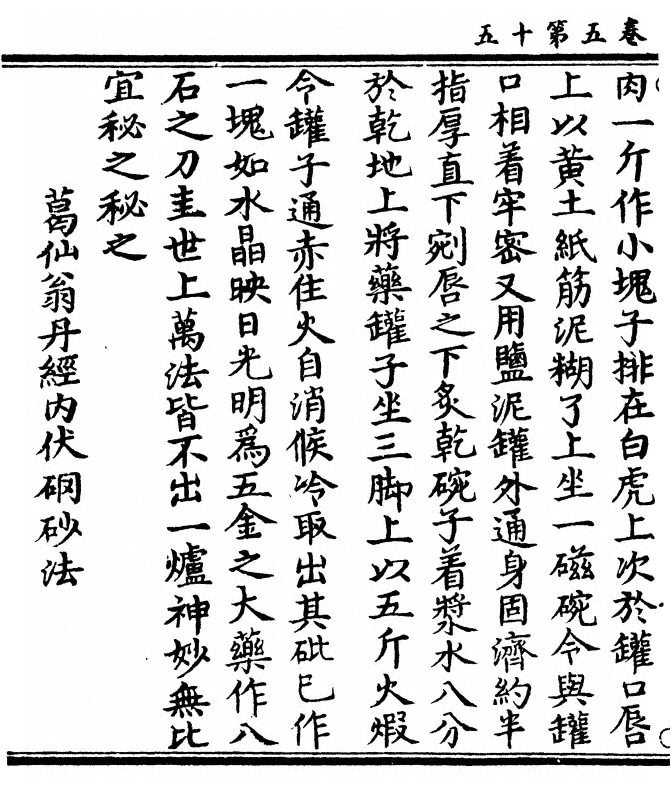 卷五第十五
肉一斤作小塊子排在白虎上次於罐口唇
上以黃土紙筋泥糊了上坐一磁碗令與罐
口相着牢密又用鹽泥罐外通身固濟約半
指厚直下剜唇之下炙乾碗子着漿水八分
於乾地上將藥罐子坐三脚上以五斤火煆
令罐子通赤住火自消候冷取出其砒已作
一塊如水晶映日光明爲五金之大藥作八
石之刀圭世上萬法皆不出一爐神妙無比
宜秘之秘之
葛仙翁丹經內伏硇砂法